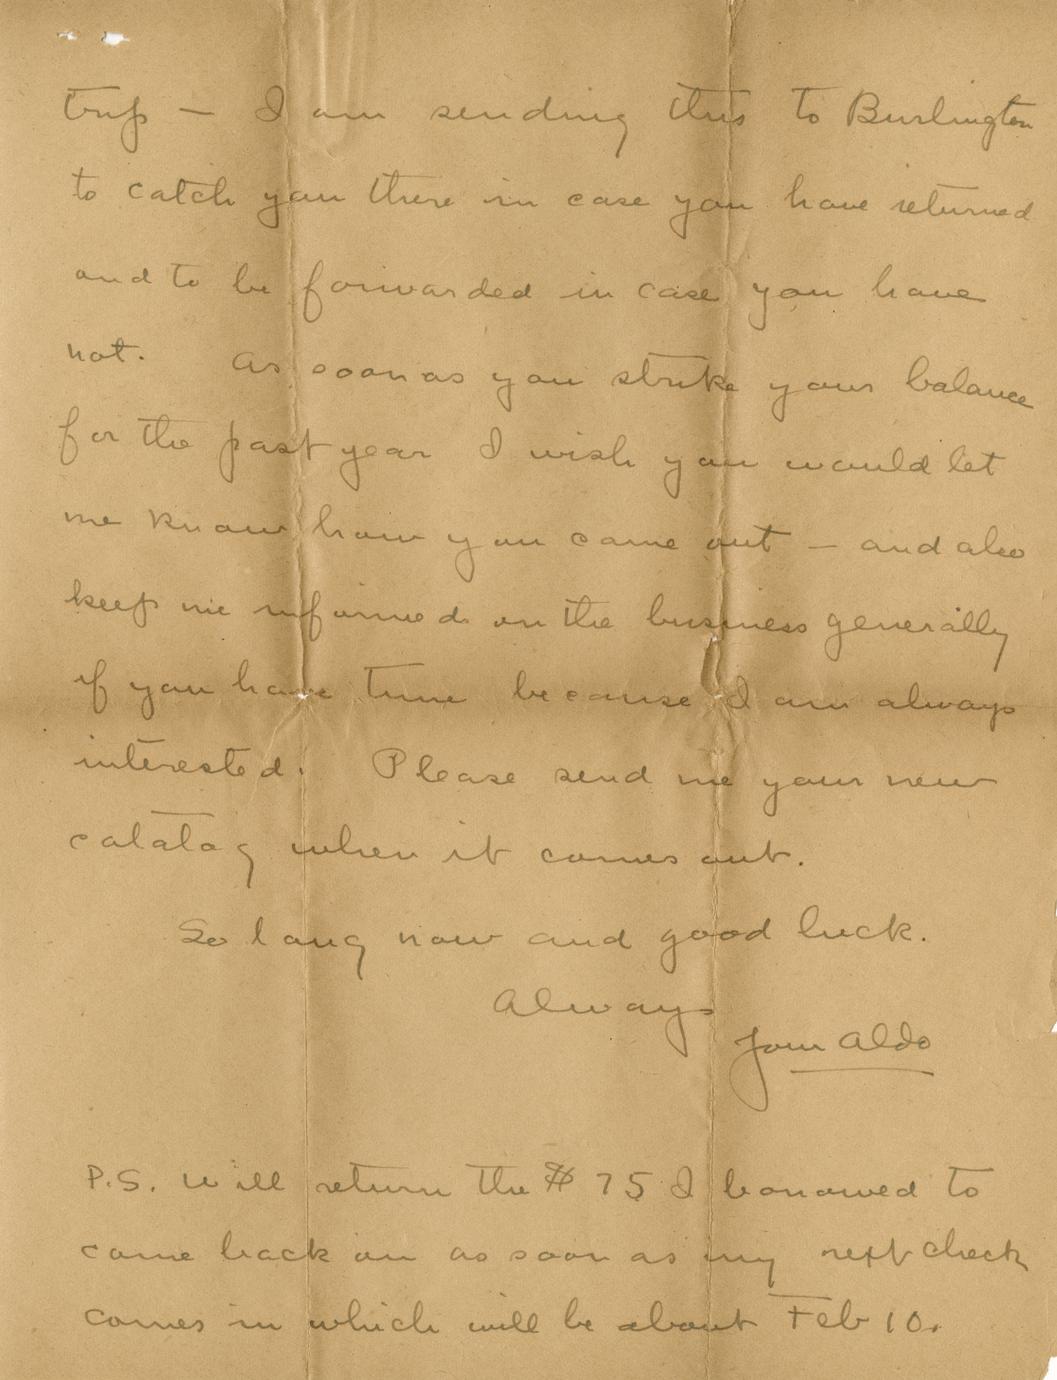 trip — I am sending this to Burlington
to catch you there in case you have returned
and to be forwarded in case you have
not. As soon as you strike your balance
for the past year I wish you would let
me know how you came out — and also
keep me informed on the business generally
if you have time because I am always
interested. Please send me your new
catalog when it comes out.
So long now and good luck.
Always
Aldo
P.S. Will return the $75 I borrowed to
come back on as soon as my next check
comes in which will be about Feb 10.